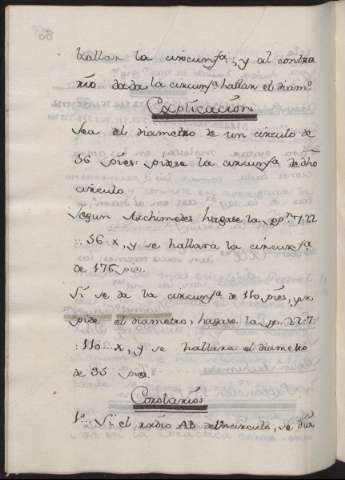 hallar la circunfa; y al contra
rio dada la circunfa hallar el diamo
Explicacion
Sea el diametro de un circulo de
56 pies: pidese la circunfa de dho
circulo
Segun Archimedes hagase la ppn 7.22
:: 56. x, y se hallará la circunfa
de 176 pies.
Si se da la circunfa de 110 pies, y se
pide el diametro, hagase la pp. 22.7
:: 110. x, y se hallara el diametro
de 35 pies.
Corolarios
1o Si el radio AB del circulo, se